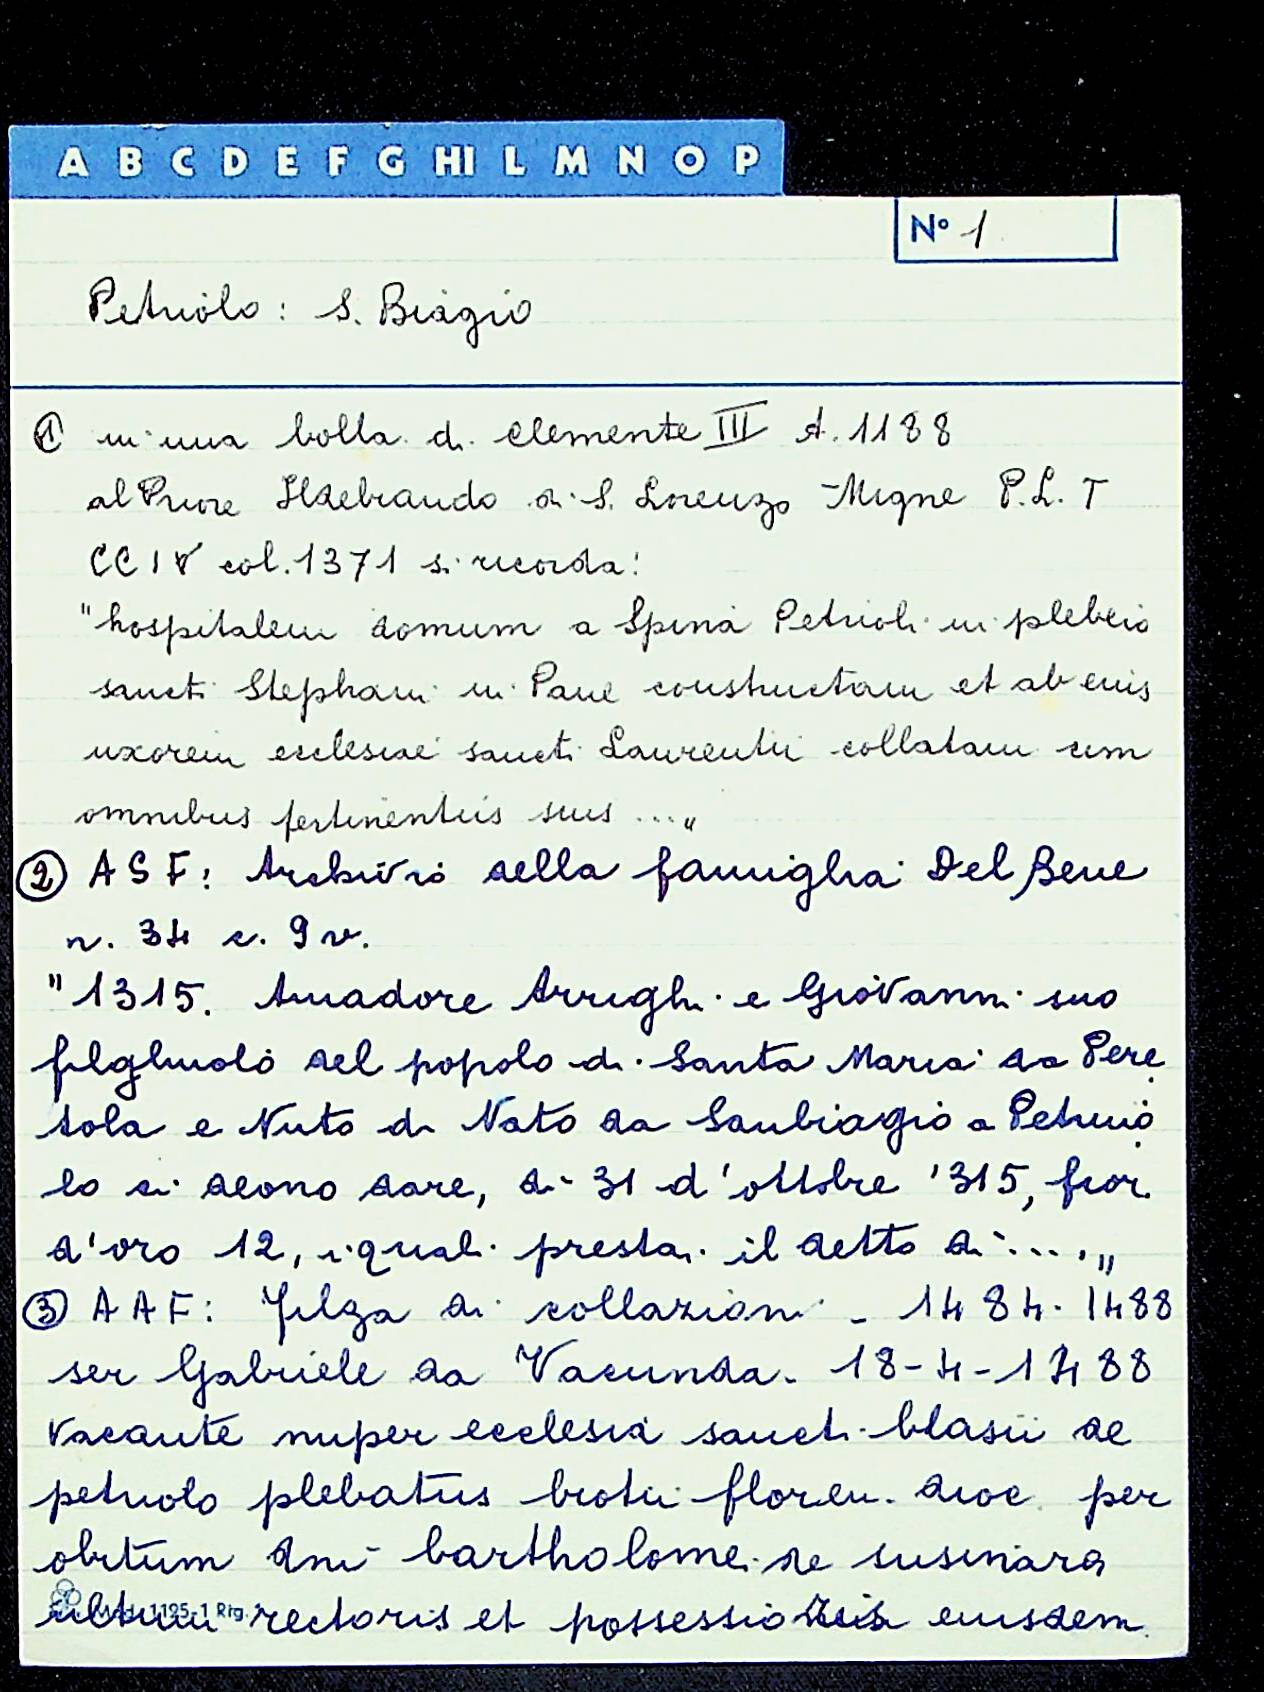 A B C D E F G HI L M N O P
N° 1
Petriolo: S. Biagio
1 in una bolla di Clemente III A. 1188
al Priore Ildebrando di S. Lorenzo - Migne P.L. T
CCIV col. 1371 si ricorda:
"hospitalem domum a Spina Petrioli in plebeio
sancti Stephani in Pane constructam et ab eius
uxorem ecclesiae sancti Laurentii collatam cum
omnibus pertinentiis suis ..."
2 ASF: Archivio della famiglia Del Bene
n. 34 c. 9v.
"1315. Amadore Arrighi e Giovanni suo
filghuolo del popolo di Santa Maria da Pere
tola e Nuto di Nato da Sanbiagio a Petruio
lo ci deono dare, di 31 d'ottobre '315, fior.
d'oro 12, i quali prestai il detto di ...."
3 AAF: Filza di collazioni - 1484-1488
ser Gabriele da Vacunda. 18-4-1488
Vacante nuper ecclesia sancti blasii de
petriolo plebatus brotii floren. dioc. per
obitum dni bartholomei de susinara
ultimi rectoris et possessionis eiusdem.
Mod. 1125-1 Rig.